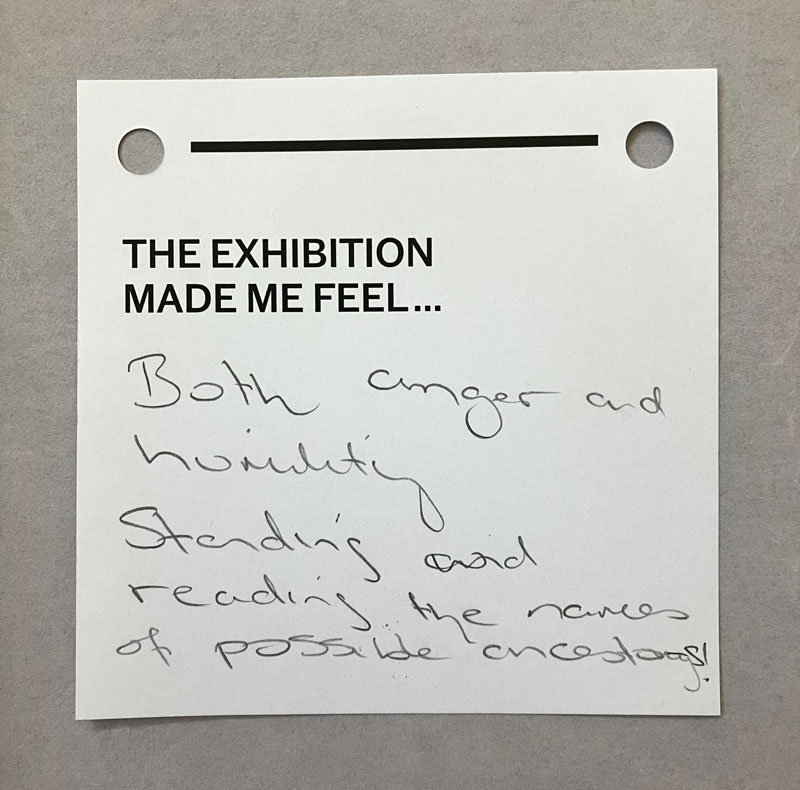 THE EXHIBITION
MADE ME FEEL...
Both anger and
humility
Standing and
reading the names
of possible ancestors!